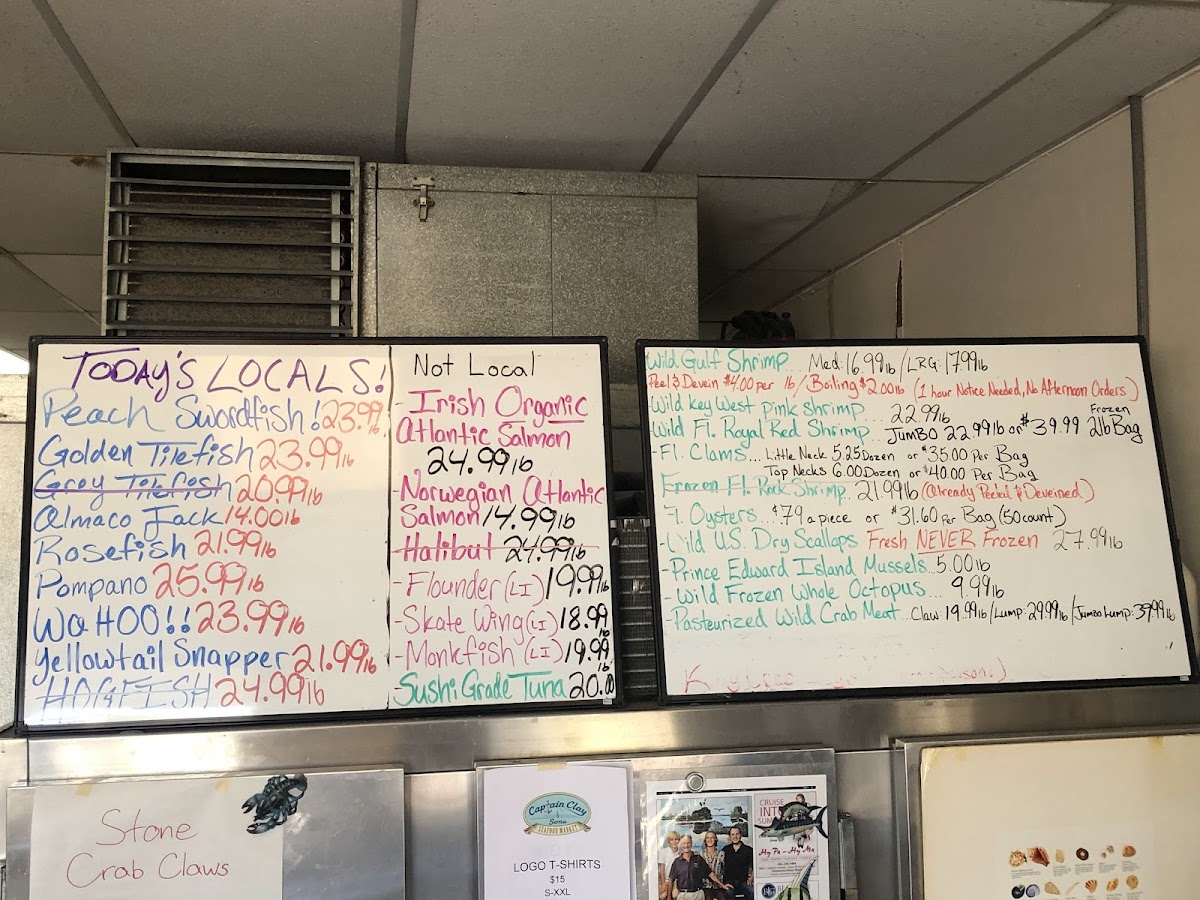 TODAY'S LOCALS!
Peach Swordfish! 23.99 lb
Golden Tilefish 23.99 lb
Grey Tilefish 20.99 lb
Almaco Jack 14.00 lb
Rosefish 21.99 lb
Pompano 25.99 lb
WaHOO!! 23.99 lb
Yellowtail Snapper 21.99 lb
HOGFISH 24.99 lb
Not Local
- Irish Organic
Atlantic Salmon
24.99 lb
- Norwegian Atlantic
Salmon 14.99 lb
- Halibut 24.99 lb
- Flounder (LI) 19.99 lb
- Skate Wing (LI) 18.99 lb
- Monkfish (LI) 19.99 lb
- Sushi Grade Tuna 20.00
Wild Gulf Shrimp... Med: 16.99 lb / LRG: 17.99 lb
Peel & Devein $4.00 per lb / Boiling $2.00 lb (1 hour Notice Needed, No Afternoon Orders)
Wild Key West Pink Shrimp 22.99 lb
Wild Fl. Royal Red Shrimp... JUMBO 22.99 lb or $39.99 Frozen 2lb Bag
- Fl. Clams... Little Neck 5.25 Dozen or $35.00 Per Bag
Top Necks 6.00 Dozen or $40.00 Per Bag
Frozen Fl. Rock Shrimp... 21.99 lb (Already Peeled & Deveined)
Oysters... $.79 a piece or $31.60 Per Bag (50 count)
- Wild U.S. Dry Scallops Fresh NEVER Frozen 27.99 lb
- Prince Edward Island Mussels... 5.00 lb
- Wild Frozen Whole Octopus... 9.99 lb
- Pasteurized Wild Crab Meat... Claw 19.99 lb / Lump: 29.99 lb / Jumbo Lump: 39.99 lb
Stone
Crab Claws
Captain Clay
& Sons
SEAFOOD MARKET
LOGO T-SHIRTS
$15
S-XXL
CRUISE
INTO
Hy Pa - Hy Ma